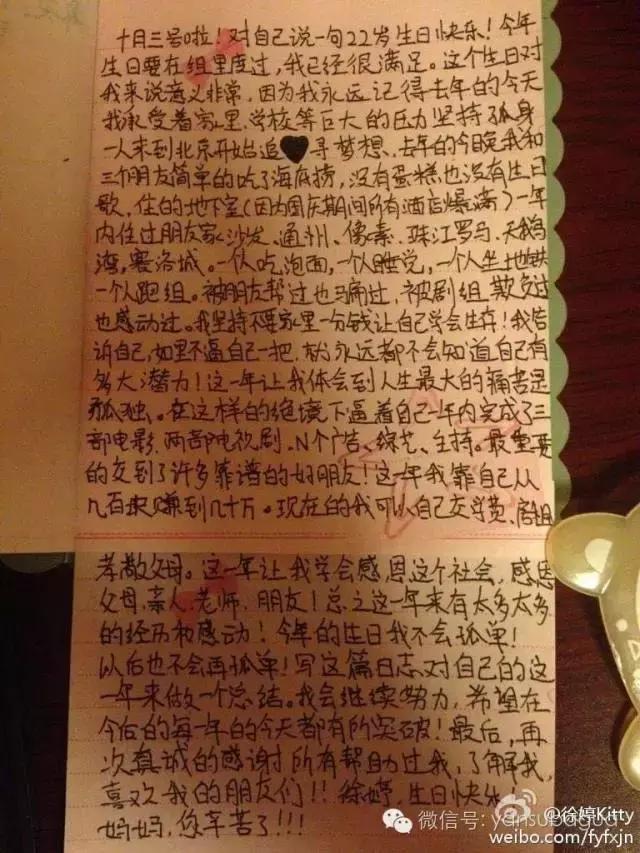 十月三号啦！对自己说一句22岁生日快乐！今年
生日要在组里度过，我已经很满足。这个生日对
我来说意义非常，因为我永远记得去年的今天
我承受着家里、学校等巨大的压力坚持孤身
一人来到北京开始追寻梦想，去年的今晚我和
三个朋友简单的吃了海底捞，没有蛋糕也没有生日
歌，住的地下室（因为国庆期间所有酒店爆满）一年
内住过朋友家沙发、通州、像素、珠江罗马、天鹅
湾，赛洛城。一个人吃泡面，一个人睡觉，一个人坐地铁
一个人跑组。被朋友帮过也骗过，被剧组欺负过
也感动过。我坚持不要家里一分钱让自己学会生存！我告
诉自己，如果不逼自己一把，就永远都不会知道自己有
多大潜力！这一年让我体会到人生最大的痛苦是
孤独。在这样的绝境下逼着自己一年内完成了三
部电影、两部电视剧、N个广告、综艺、主持。最重要
的交到了许多靠谱的好朋友！这一年我靠自己从
几百块赚到几十万。现在的我可以自己交学费、房租
孝敬父母。这一年让我学会感恩这个社会，感恩
父母、亲人、老师、朋友！总之这一年来有太多太多
的经历和感动！今年的生日我不会孤单！
以后也不会再孤单！写这篇日志对自己的这
一年来做一个总结。我会继续努力，希望在
今后的每一年的今天都有所突破！最后，再
次真诚的感谢所有帮助过我，了解我，
喜欢我的朋友们！！徐婷，生日快乐
妈妈，您辛苦了！！！
@徐婷Kitty
微信号: yansubagua
weibo.com/fyfxjn